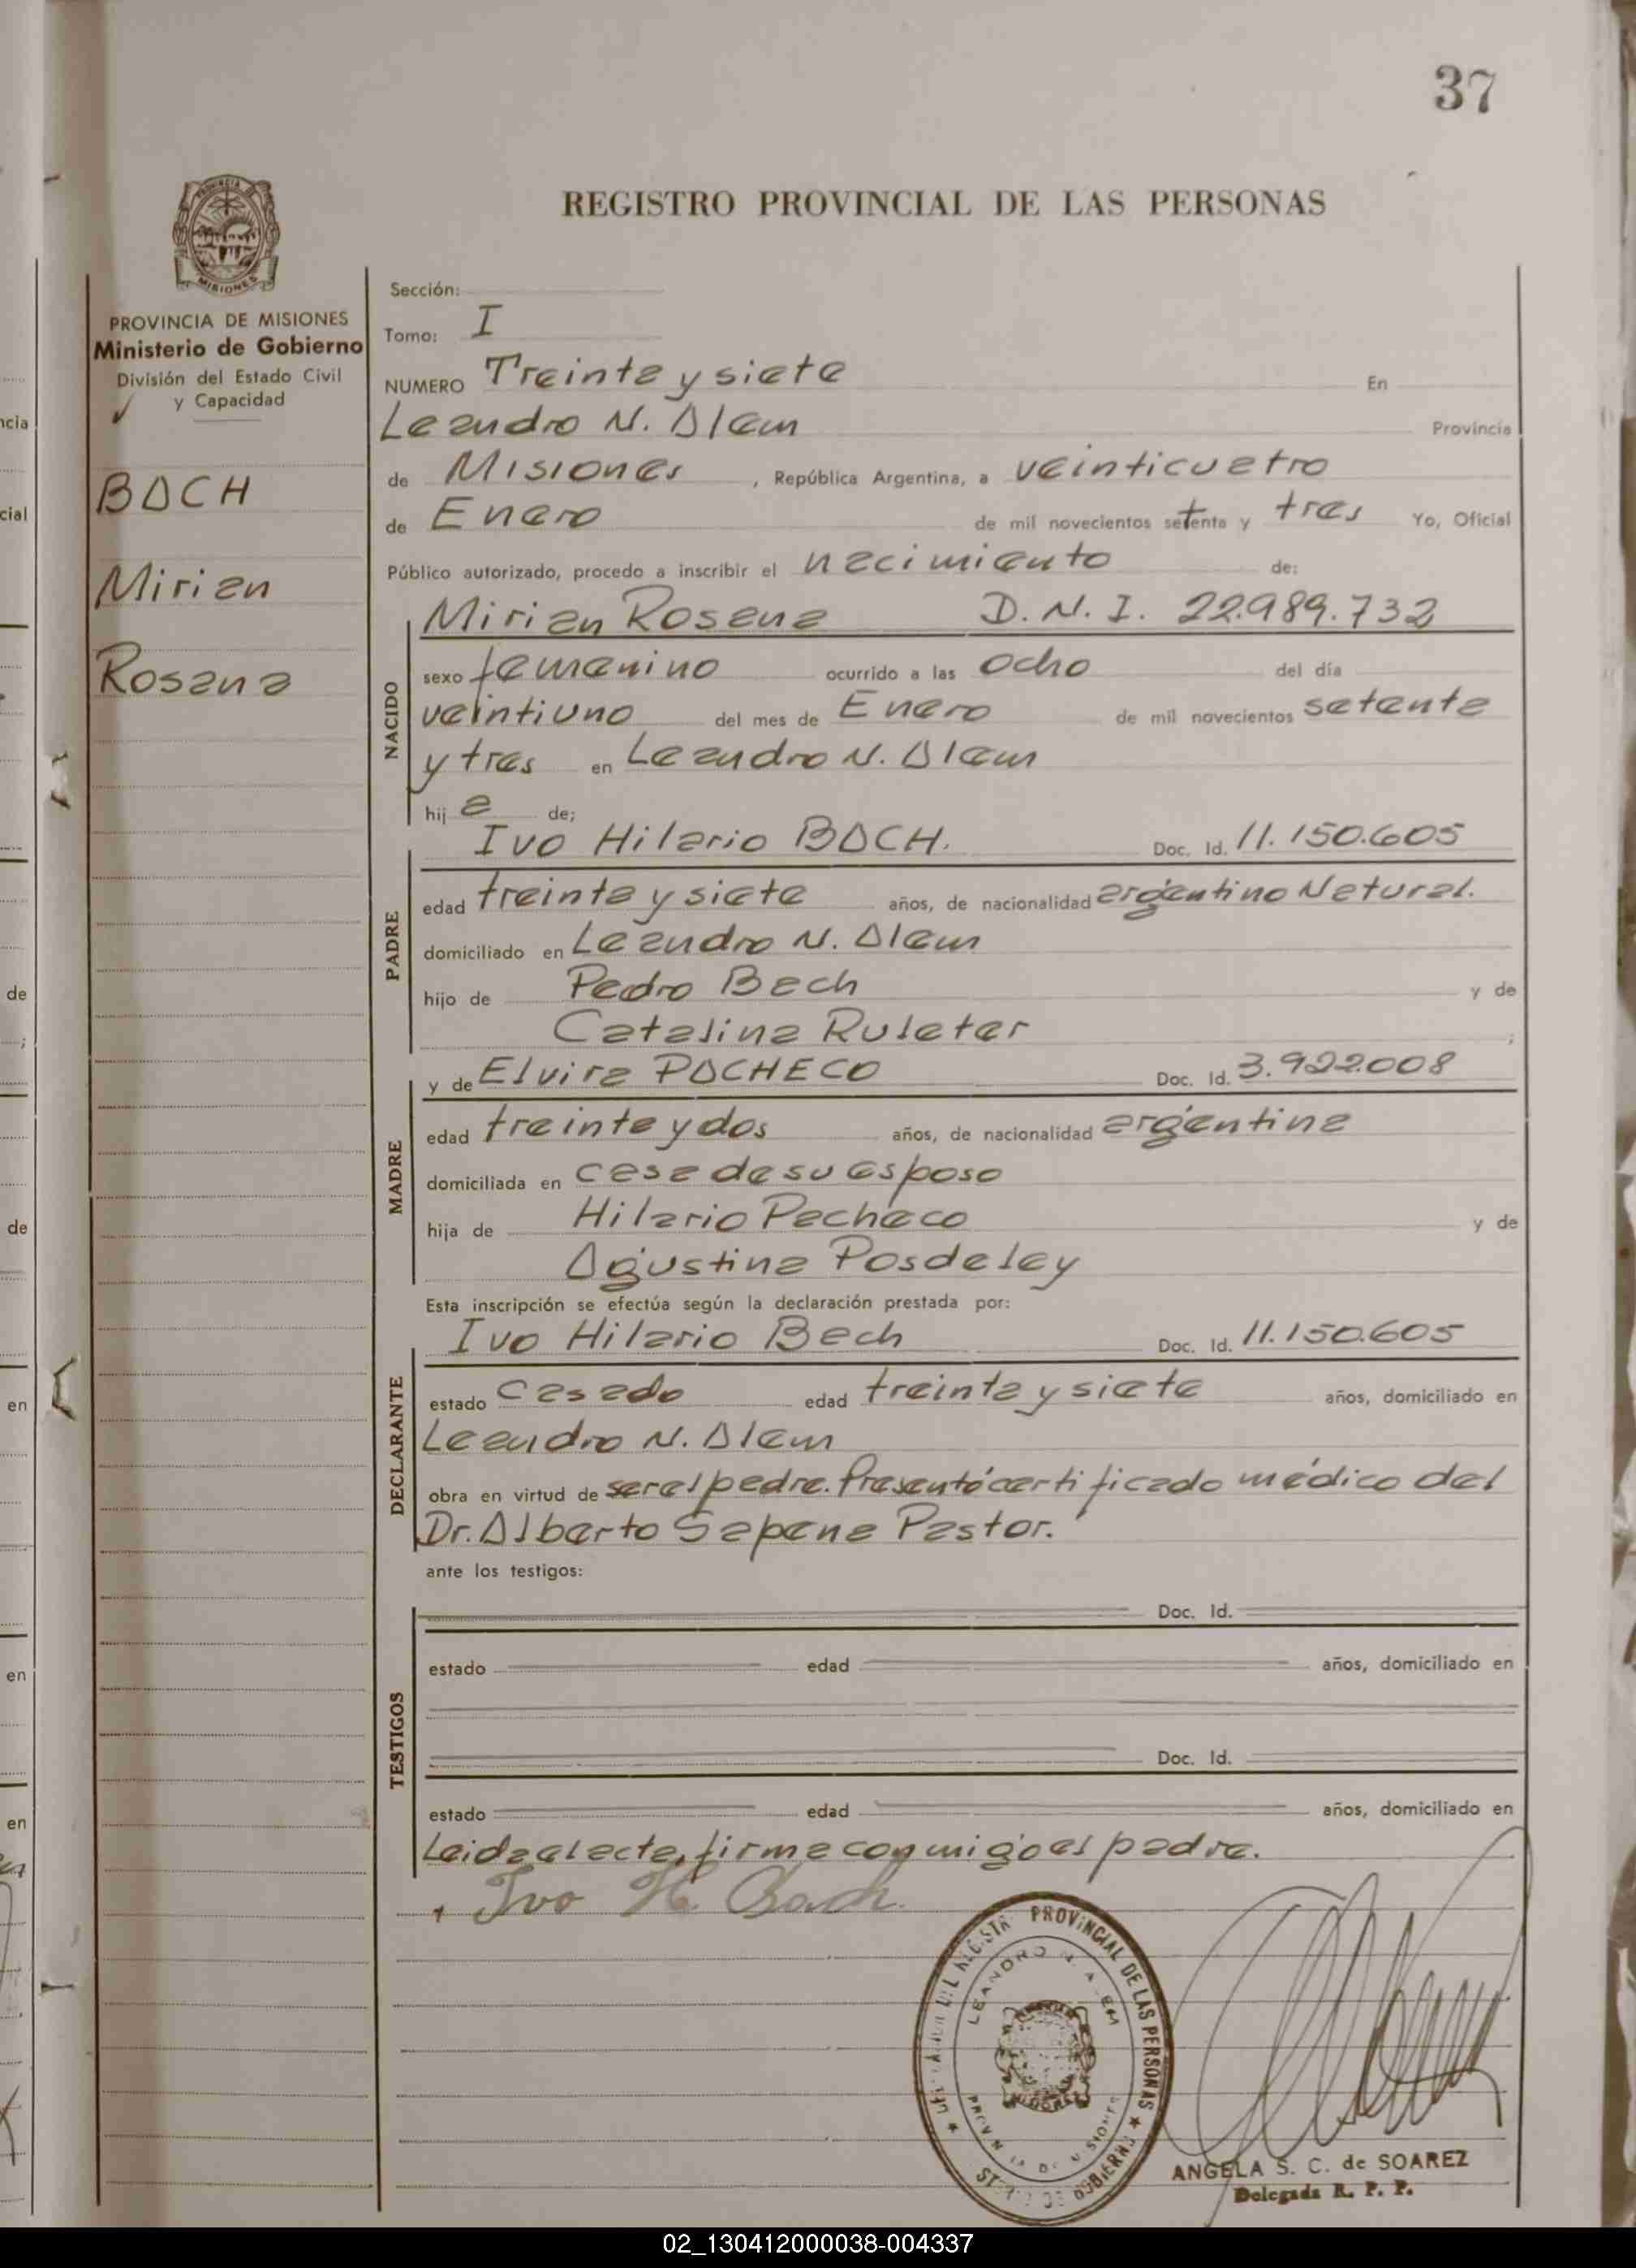 37
REGISTRO PROVINCIAL DE LAS PERSONAS
MISIONES
PROVINCIA DE MISIONES
Ministerio de Gobierno
División del Estado Civil
y Capacidad
BACH
Mirian
Rosana
Sección:
Tomo: I
NUMERO Treinta y siete En
Leandro N. Alem Provincia
de Misiones , República Argentina, a veinticuatro
de Enero de mil novecientos setenta y tres Yo, Oficial
Público autorizado, procedo a inscribir el nacimiento de:
NACIDO
Mirian Rosana D.N.I. 22.989.732
sexo femenino ocurrido a las ocho del día
veintiuno del mes de Enero de mil novecientos setenta
y tres en Leandro N. Alem
hij a de;
PADRE
Ivo Hilario BACH. Doc. Id. 11.150.605
edad treinta y siete años, de nacionalidad argentino Natural.
domiciliado en Leandro N. Alem
hijo de Pedro Bach y de
Catalina Ruleter ;
MADRE
y de Elvira PACHECO Doc. Id. 3.922.008
edad treinta y dos años, de nacionalidad argentina
domiciliada en casa de su esposo
hija de Hilario Pacheco y de
Agustina Posdeley
Esta inscripción se efectúa según la declaración prestada por:
DECLARANTE
Ivo Hilario Bach Doc. Id. 11.150.605
estado casado edad treinta y siete años, domiciliado en
Leandro N. Alem
obra en virtud de ser el padre. Presentó certificado médico del
Dr. Alberto Sapena Pastor.
ante los testigos:
TESTIGOS
Doc. Id.
estado edad años, domiciliado en
Doc. Id.
estado edad años, domiciliado en
Leida el acta, firma conmigo el padre.
Ivo H. Bach.
PROVINCIAL DE LAS PERSONAS
LEANDRO N. ALEM
ANGELA S. C. de SOAREZ
Delegada R. P. P.
02_130412000038-004337